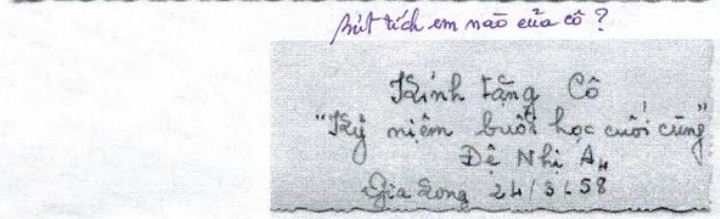 Bút tích em nào của cô?
Kính tặng Cô
"Kỷ niệm buổi học cuối cùng"
Đệ Nhị A4
Gia Long 24/3/58